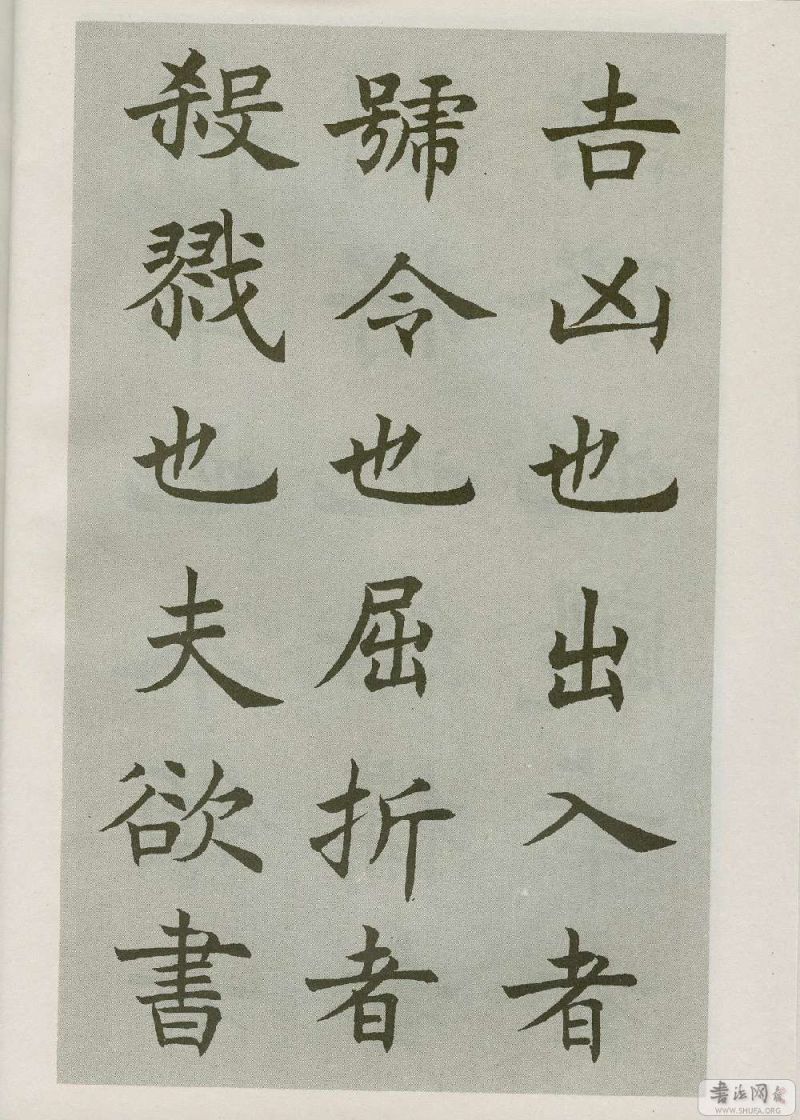 吉凶也出入者
號令也屈折者
殺戮也夫欲書
书法网
WWW.SHUFA.ORG